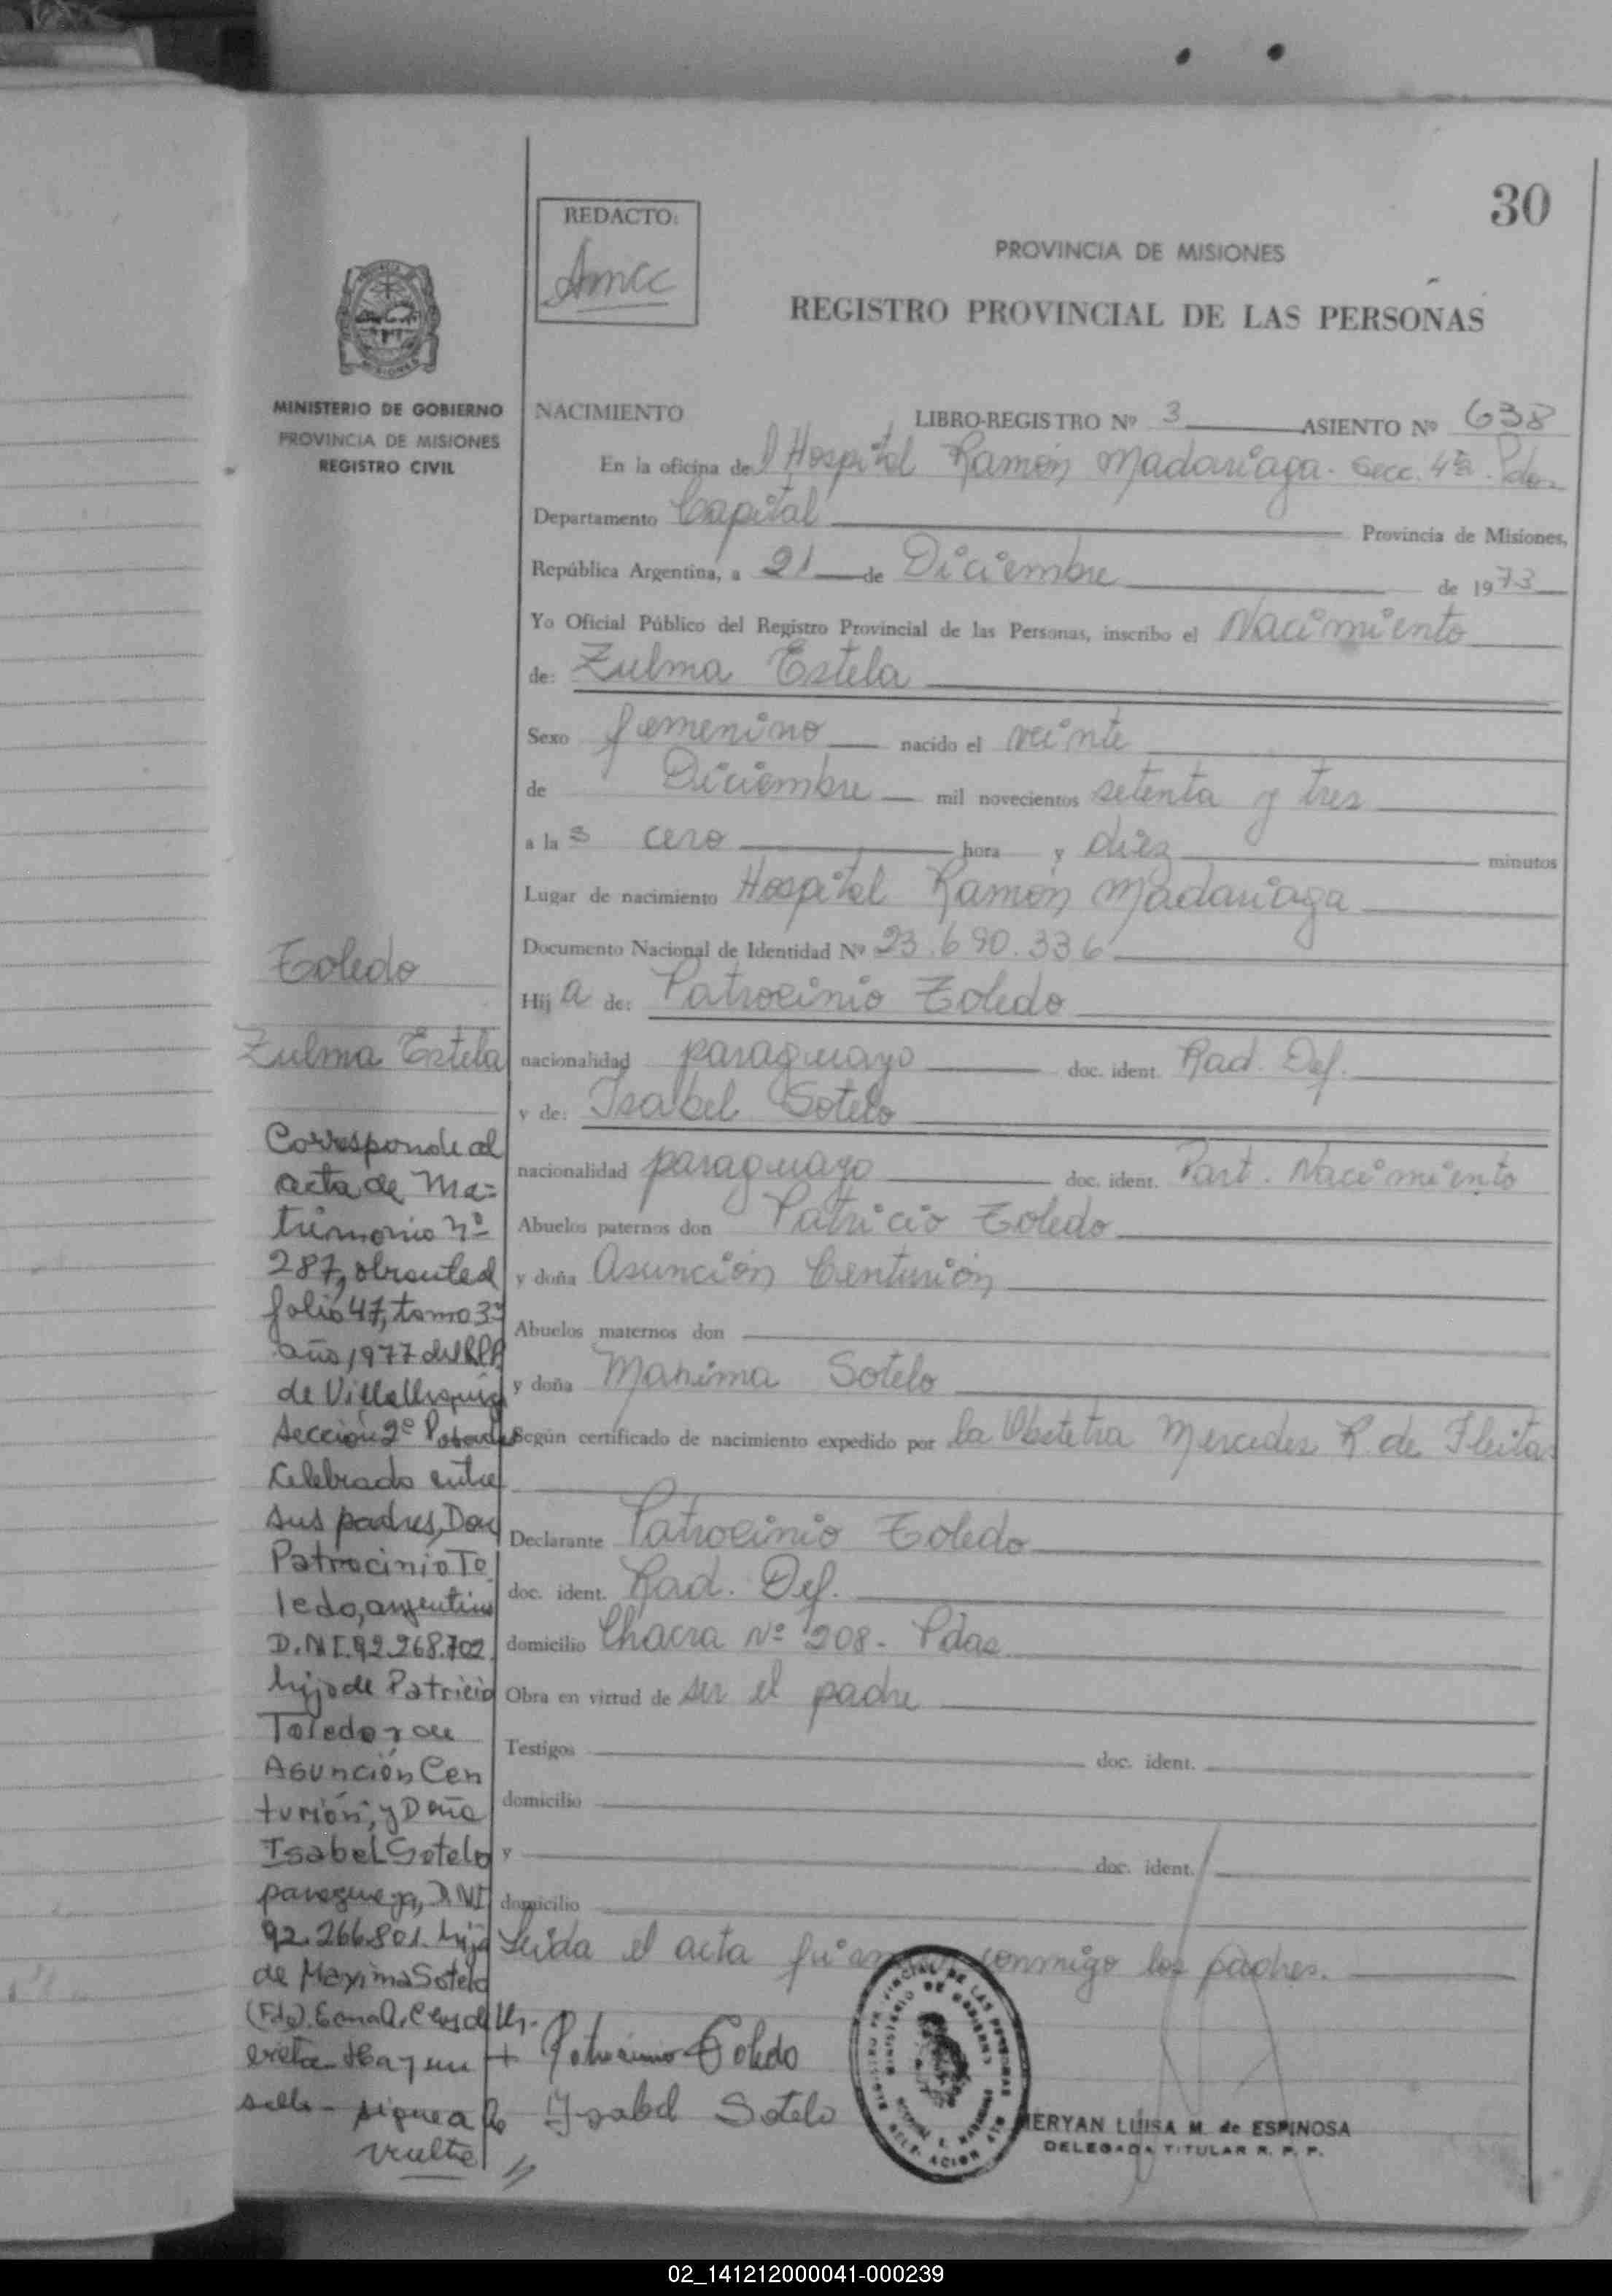 30
REDACTO:
Amcc
PROVINCIA DE MISIONES
REGISTRO PROVINCIAL DE LAS PERSONAS
MINISTERIO DE GOBIERNO
PROVINCIA DE MISIONES
REGISTRO CIVIL
NACIMIENTO LIBRO-REGISTRO Nº 3 ASIENTO Nº 638
En la oficina del Hospital Ramón Madariaga. Secc. 4ta. Pdas.
Departamento Capital Provincia de Misiones,
República Argentina, a 21 de Diciembre de 1973
Yo Oficial Público del Registro Provincial de las Personas, inscribo el Nacimiento
de: Zulma Estela
Sexo femenino nacido el veinte
de Diciembre mil novecientos setenta y tres
a la s cero hora y diez minutos
Lugar de nacimiento Hospital Ramón Madariaga
Documento Nacional de Identidad Nº 23.690.336
Hij a de: Patrocinio Toledo
nacionalidad paraguayo doc. ident. Rad. Def.
y de: Isabel Sotelo
nacionalidad paraguayo doc. ident. Part. Nacimiento
Abuelos paternos don Patricio Toledo
y doña Asunción Centurión
Abuelos maternos don
y doña Maxima Sotelo
Según certificado de nacimiento expedido por la Obstetra Mercedes R. de Fleitas
Declarante Patrocinio Toledo
doc. ident. Rad. Def.
domicilio Chacra Nº 208- Pdas
Obra en virtud de ser el padre
Testigos doc. ident.
domicilio
y doc. ident.
domicilio
Leida el acta firman conmigo los padres.
Patrocinio Toledo
Isabel Sotelo
MERYAN LUISA M. de ESPINOSA
DELEGADA TITULAR R. P. P.
Toledo
Zulma Estela
Corresponde al
acta de Ma-
trimonio nº
287, obrante al
folio 47, tomo 3º
año 1977 del R.P.P.
de Villa Urquiza
Sección 2º Posadas
Celebrado entre
sus padres, Don
Patrocinio To
ledo, argentino
D.N.I. 92.268.702
hijo de Patricio
Toledo y de
Asunción Cen
turión, y Doña
Isabel Sotelo
paraguaya, DNI
92.266.801. hija
de Maxima Sotelo
(Fdo)
Hay un
sello - sigue a la
vuelta //
02_141212000041-000239